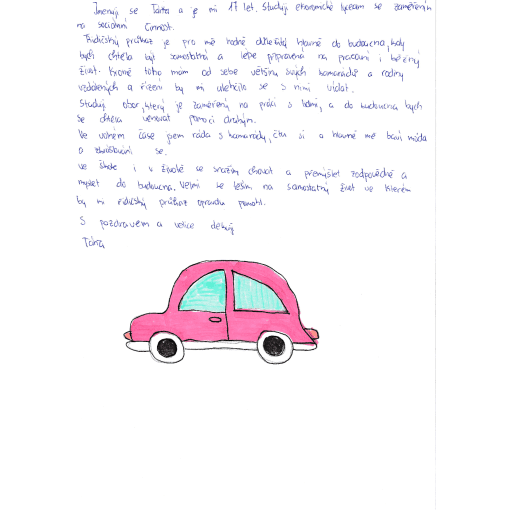 Jmenuji se Tára a je mi 17 let. Studuji ekonomické lyceum se zaměřením
na sociální činnost.
Řidičský průkaz je pro mě hodně důležitý hlavně do budoucna, kdy
bych chtěla být samostatná a lépe připravená na pracovní i běžný
život. Kromě toho mám od sebe většinu svých kamarádů a rodiny
vzdálených a řízení by mi ulehčilo se s nimi vídat.
Studuji obor, který je zaměřený na práci s lidmi, a do budoucna bych
se chtěla věnovat pomoci druhým.
Ve volném čase jsem ráda s kamarády, čtu si a hlavně mě baví móda
a zkrášlování se.
Ve škole i v životě se snažím chovat a přemýšlet zodpovědně a
myslet do budoucna. Velmi se těším na samostatný život ve kterém
by mi řidičský průkaz opravdu pomohl.
S pozdravem a velice děkuji
Tára